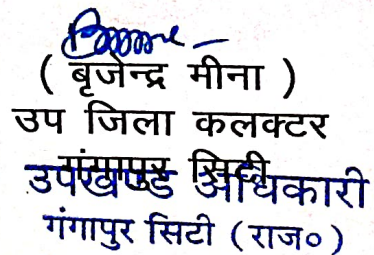 ( बृजेन्द्र मीना )
उप जिला कलक्टर
गंगापुर सिटी
उपखण्ड अधिकारी
गंगापुर सिटी (राज०)